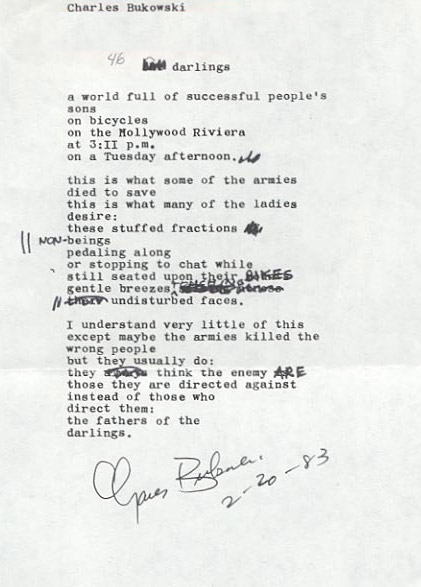 Charles Bukowski
46
darlings
a world full of successful people's
sons
on bicycles
on the Hollywood Riviera
at 3:II p.m.
on a Tuesday afternoon.
this is what some of the armies
died to save
this is what many of the ladies
desire:
these stuffed fractions
NON-beings
pedaling along
or stopping to chat while
still seated upon their BIKES
gentle breezes TOUCHING
their undisturbed faces.
I understand very little of this
except maybe the armies killed the
wrong people
but they usually do:
they think the enemy ARE
those they are directed against
instead of those who
direct them:
the fathers of the
darlings.
Charles Bukowski
2-20-83